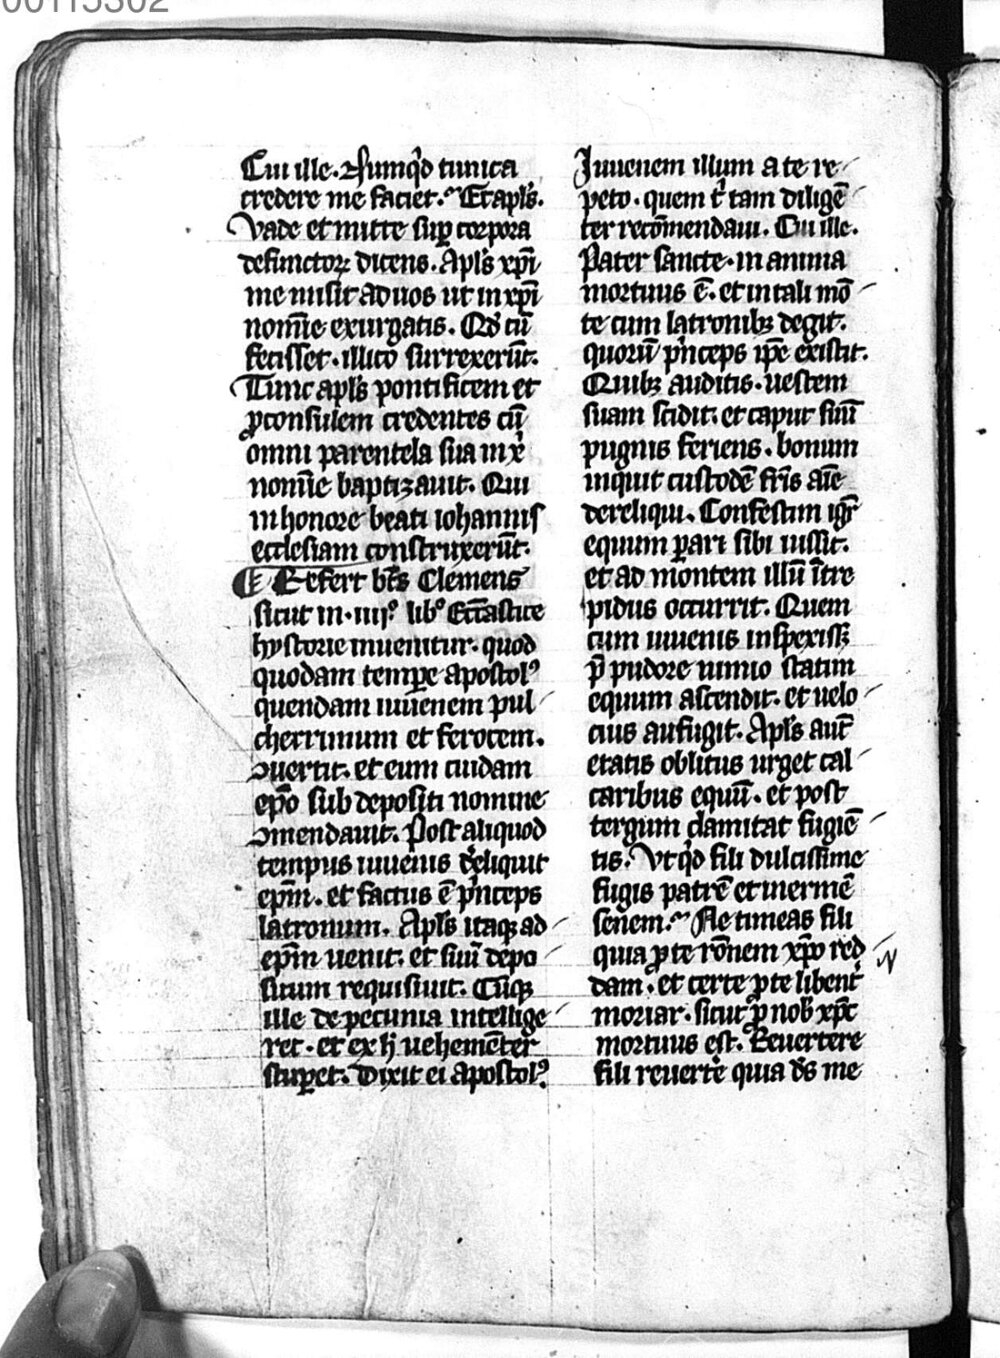 00115302
Cui ille. Nunqͥd tunica
credere me faciet. Et apl̃s.
Vade et mitte suꝑ corpora
defunctoꝝ dicens. Apl̃s xp̃i
me misit ad uos ut in xp̃i
nomĩe exurgatis. Qd̃ cũ
fecisset. illico surrexerũt.
Tunc apl̃s pontificem et
ꝓconsulem credentes cũ
omni parentela sua in xͥ
nomĩe baptizauit. Qui
in honore beati iohannis
ecclesiam construxerũt.
Refert bt̃s Clemens
sicut in .iiij.º libº Ecc̃astice
hystorie inuenitur. quod
quodam temꝑe apostolꝰ
quendam iuuenem pul
cherrimum et ferocem.
ꝯuertit. et eum cuidam
ep̃o sub depositi nomine
ꝯmendauit. Post aliquod
tempus iuuenis d̓eliquit
ep̃m. et factus ẽ pͥnceps
latronum. Apl̃s itaqꝫ ad
ep̃m uenit. et suũ depo
situm requisiuit. Cũqꝫ
ille de pecunia intellige
ret. et ex h̓ uehemẽter
stuꝑet. Dixit ei apostolꝰ.
Iuuenem illum a te re
peto. quem tͥ tam diligẽ
ter recõmendaui. Cui ille.
Pater sancte. in anima
mortuus ẽ. et in tali mõ
te cum latronibꝫ degit.
quorũ pͥnceps ip̃e existit.
Quibꝫ auditis. uestem
suam scidit. et caput suũ
pugnis feriens. bonum
inquit custodẽ fr̃is aĩe
dereliqui. Confestim igr̃
equum ꝑari sibi iussit.
et ad montem illũ ĩtre
pidus occurrit. Quem
cum iuuenis inspexissꝫ
p̃ pudore nimio statim
equum ascendit. et uelo
cius aufugit. Apl̃s aut̃
etatis oblitus urget cal
caribus equũ. et post
tergum clamitat fugiẽ
tis. Vt qͥd fili dulcissime
fugis patrẽ et inermẽ
senem. Ne timeas fili
quia ꝓ te rõnem xp̃o red
dam. et certe ꝓ te libent̓
moriar. sicut ꝓ nob̃ xp̃c
mortuus est. Reuertere
fili reuert̓e quia ds̃ me